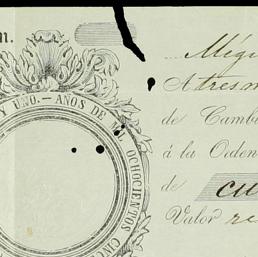 m.
Y UNO.—AÑOS DE MIL OCHOCIENTOS CINC
Méji
A tres m
de Cambi
á la Orden
de cu
Valor re